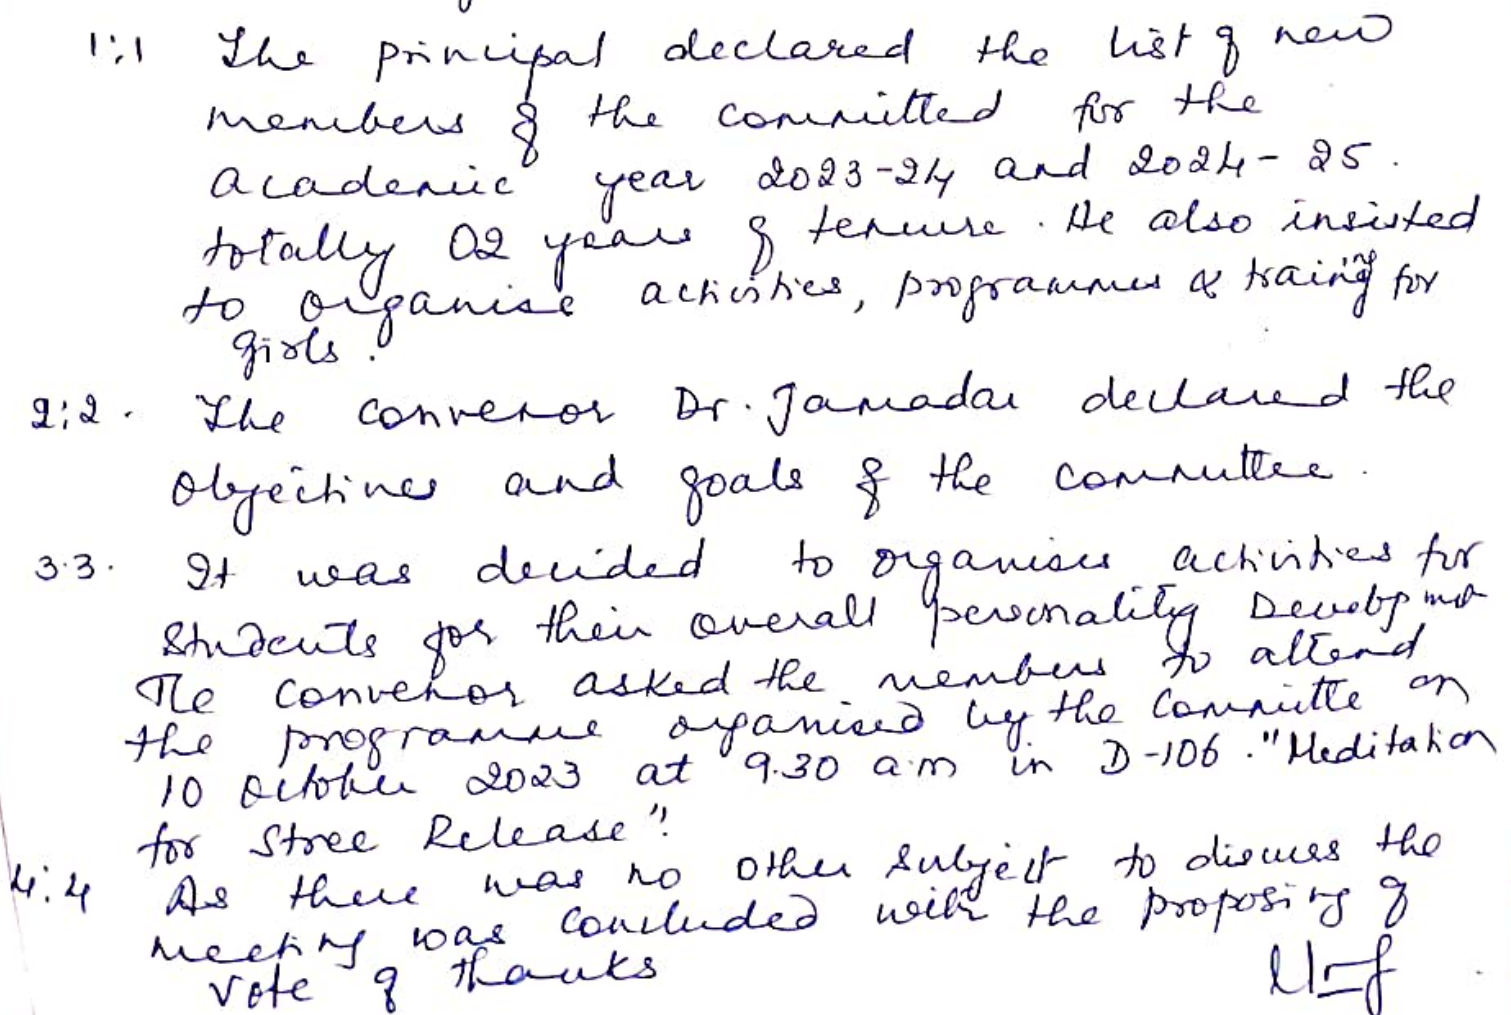 1:1 The principal declared the list of new
members of the committed for the
academic year 2023-24 and 2024-25.
totally 02 years of tenure. He also insisted
to organise activities, programmes & traing for
girls.
2:2. The convenor Dr. Jamadar declared the
objectives and goals of the committee.
3.3. It was decided to organises activities for
Students for their overall personality Development
The convenor asked the members to attend
the programme organised by the Committe on
10 October 2023 at 9.30 a.m in D-106. "Meditation
for Stree Release".
4:4 As there was no other subject to discuss the
meeting was concluded with the proposing of
vote of thanks